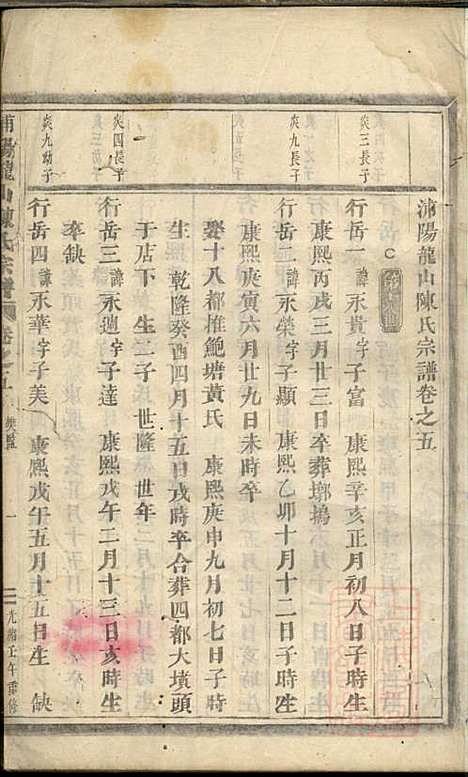 浦陽龍山陳氏宗譜卷之五
炎三長子
行岳一 諱永貴 字子富 康熙辛亥正月初八日子時生
康熙丙戌三月廿三日卒葬塚塢
炎九長子
行岳二 諱永榮 字子顯 康熙乙卯十月十二日子時生
康熙庚寅六月廿九日未時卒
娶十八都推鮑塘黃氏 康熙庚申九月初七日子時
生 乾隆癸酉四月十五日戌時卒合葬四都大墳頭
于店下 生二子 世隆 世年
炎四長子
行岳三 諱永遠 字子達 康熙戊午二月十三日亥時生
卒缺
炎九幼子
行岳四 諱永華 字子美 康熙戊午五月十五日生 缺
浦陽龍山陳氏宗譜 卷之五
一
光緒壬午重修